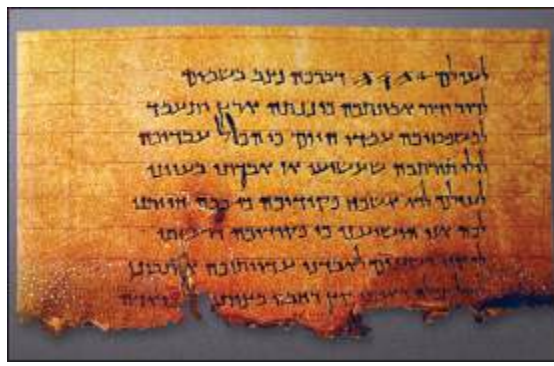 לעולם 𐤉𐤄𐤅𐤄 דברכה נצב בשמים
לדור ודור אמונתכה כוננתה ארץ ותעמד
למשפטיכה עמדו היום כי הכול עבדיכה
לולי תורתכה שעשועי אז אבדתי בעווני
לעולם לוא אשכח פקודיכה כי במה חייתני
לכה אני הושיעני כי פקודיכה דרשתי
רשעים לאבדני עדוותיכה אתבונן
קץ רחבה